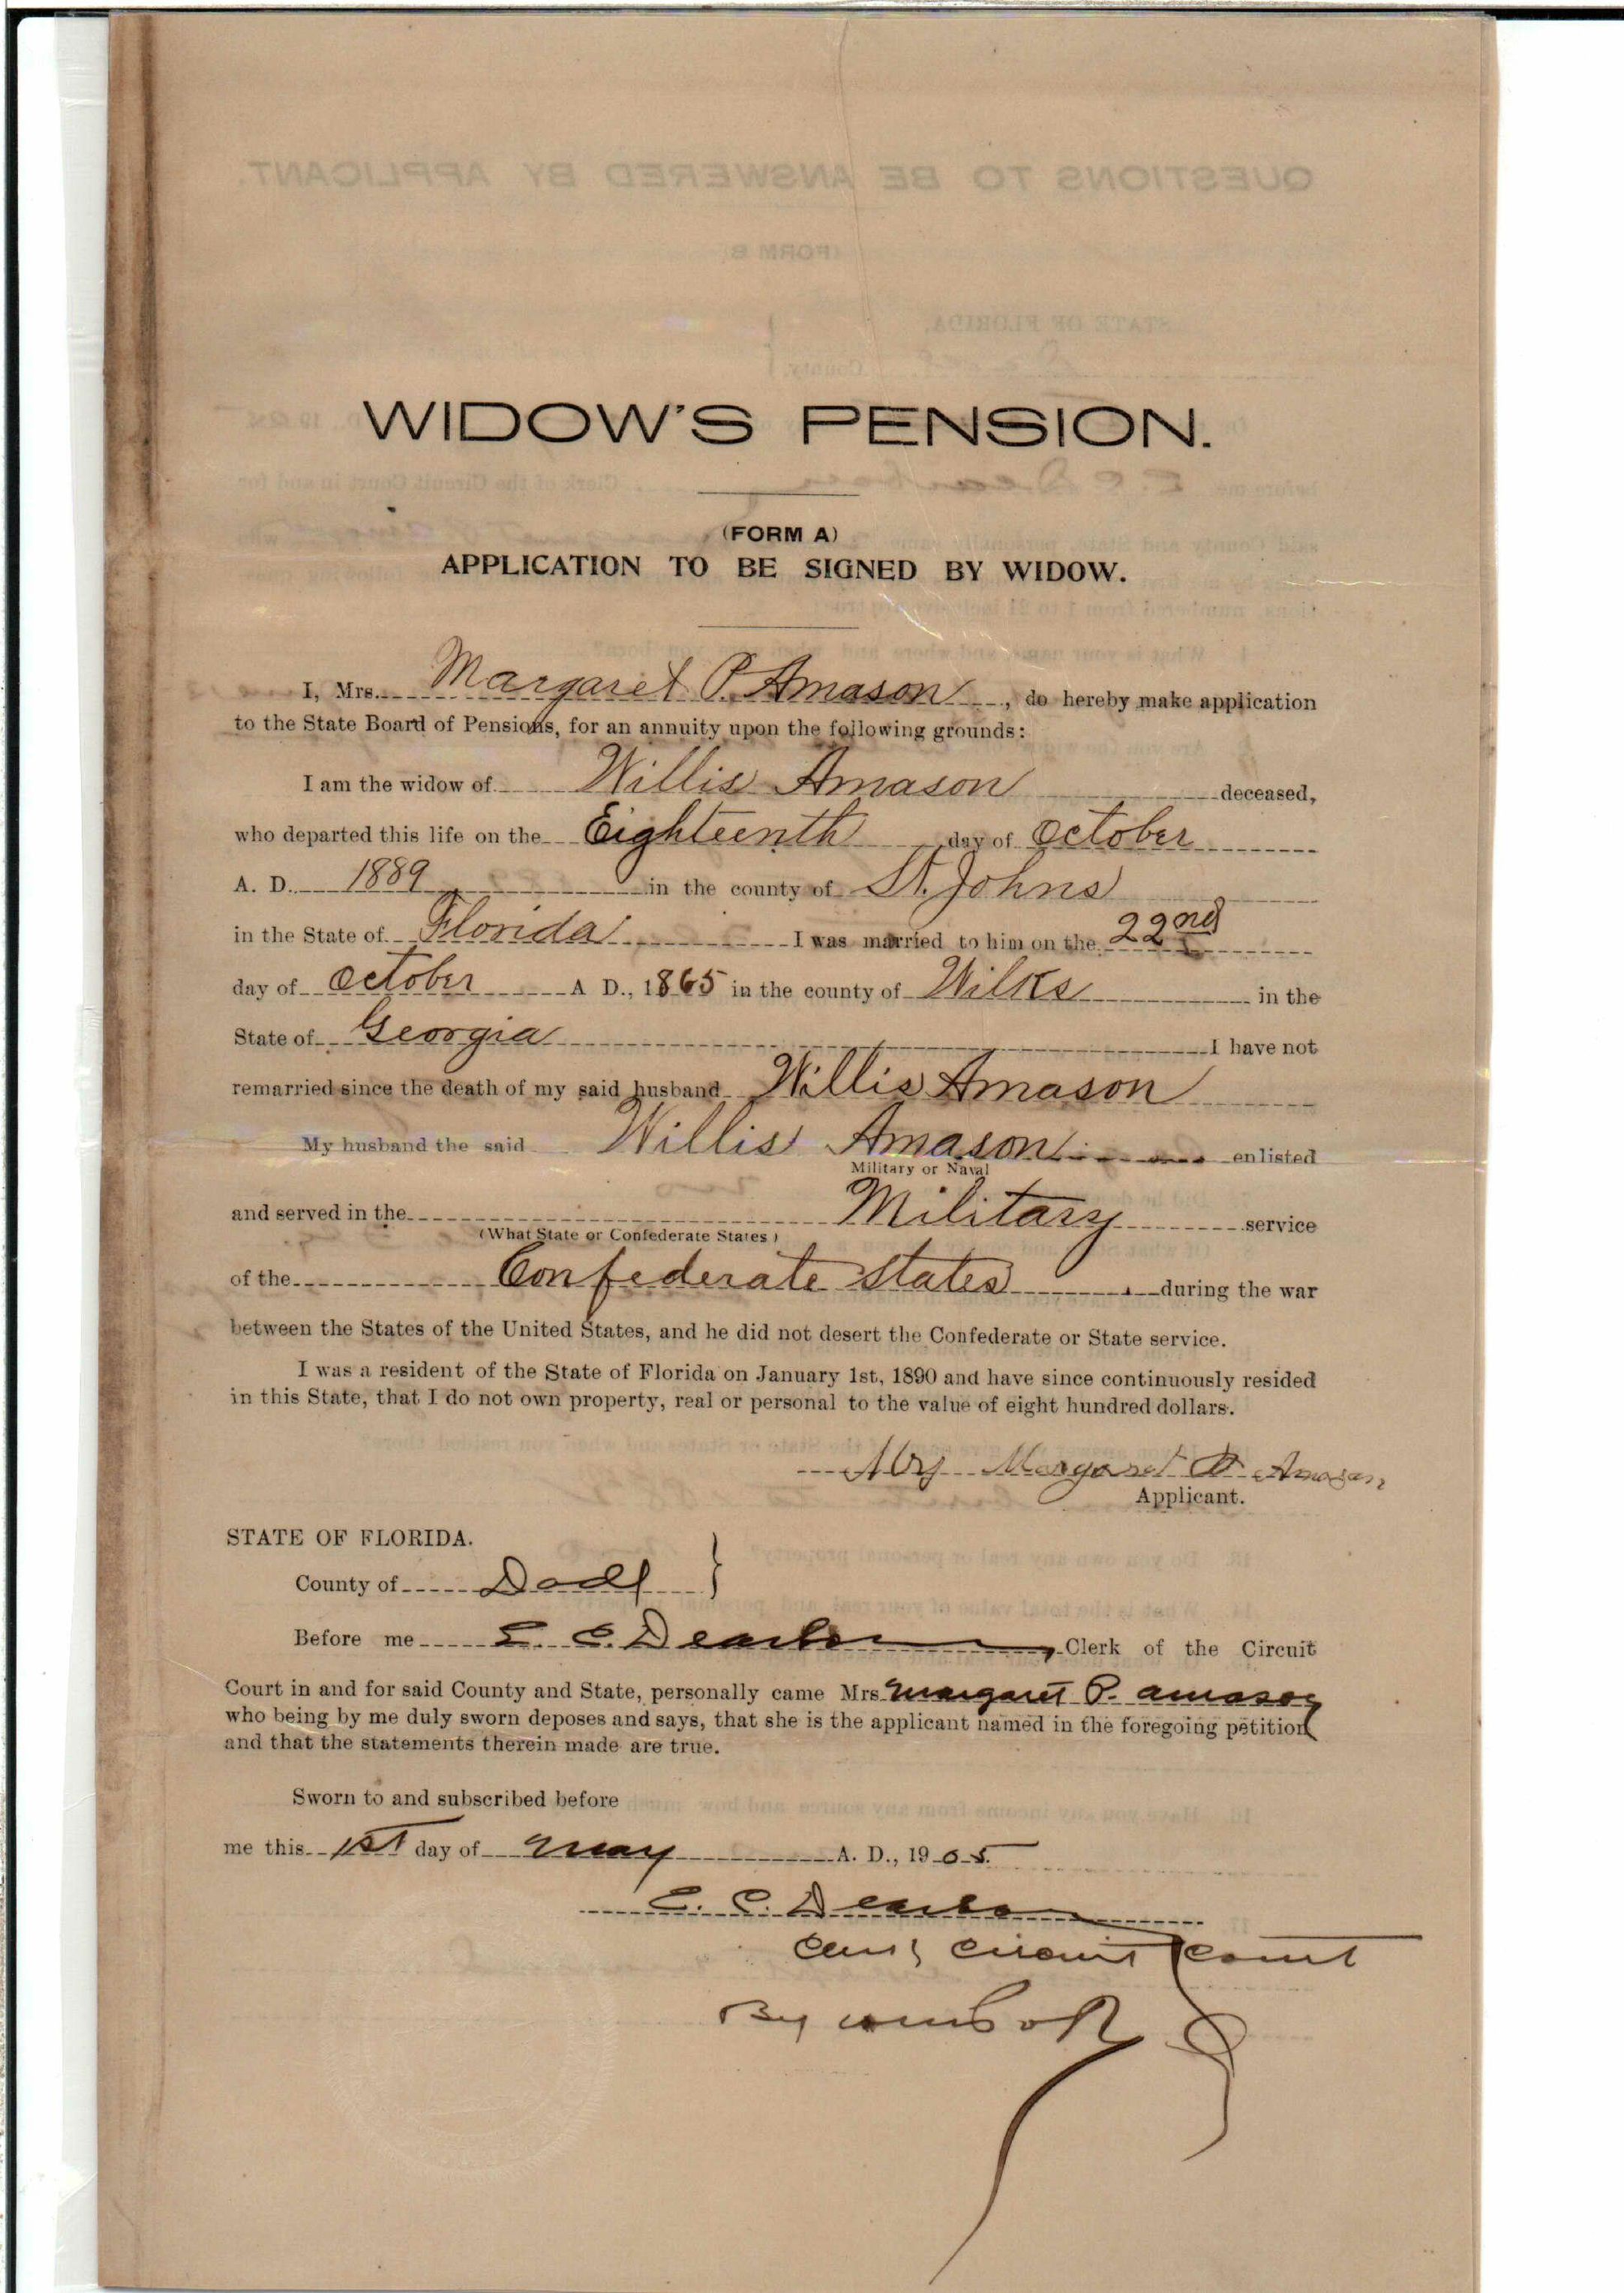 WIDOW'S PENSION.
(FORM A)
APPLICATION TO BE SIGNED BY WIDOW.
I, Mrs. Margaret P. Amason, do hereby make application
to the State Board of Pensions, for an annuity upon the following grounds:
I am the widow of Willis Amason deceased,
who departed this life on the Eighteenth day of October
A. D. 1889 in the county of St. Johns
in the State of Florida I was married to him on the 22nd
day of October A D., 1865 in the county of Wilks in the
State of Georgia I have not
remarried since the death of my said husband Willis Amason
My husband the said Willis Amason enlisted
Military or Naval
and served in the Military service
(What State or Confederate States)
of the Confederate States during the war
between the States of the United States, and he did not desert the Confederate or State service.
I was a resident of the State of Florida on January 1st, 1890 and have since continuously resided
in this State, that I do not own property, real or personal to the value of eight hundred dollars.
Mrs Margaret P Amason
Applicant.
STATE OF FLORIDA.
County of Dade }
Before me E. C. Dearborn, Clerk of the Circuit
Court in and for said County and State, personally came Mrs Margaret P. Amason
who being by me duly sworn deposes and says, that she is the applicant named in the foregoing petition
and that the statements therein made are true.
Sworn to and subscribed before
me this 1st day of May A. D., 1905.
E. C. Dearborn
Clerk Circuit Court
By